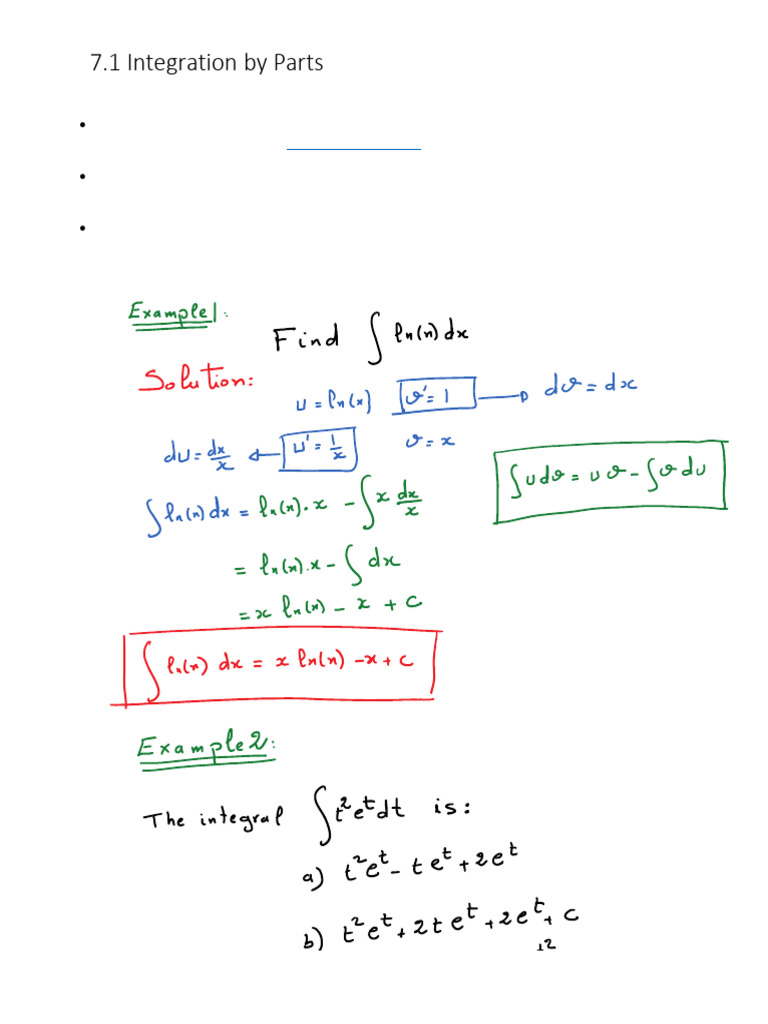 7.1 Integration by Parts
•
•
•
Example 1:
Find ∫ ln(x) dx
Solution:
u = ln(x) v' = 1 → dv = dx
du = dx/x ← u' = 1/x v = x
∫ u dv = u v - ∫ v du
∫ ln(x) dx = ln(x) . x - ∫ x dx/x
= ln(x) . x - ∫ dx
= x ln(x) - x + c
∫ ln(x) dx = x ln(x) - x + c
Example 2:
The integral ∫ t²e^t dt is:
a) t²e^t - t e^t + 2e^t
b) t²e^t + 2t e^t + 2e^t + c
+2